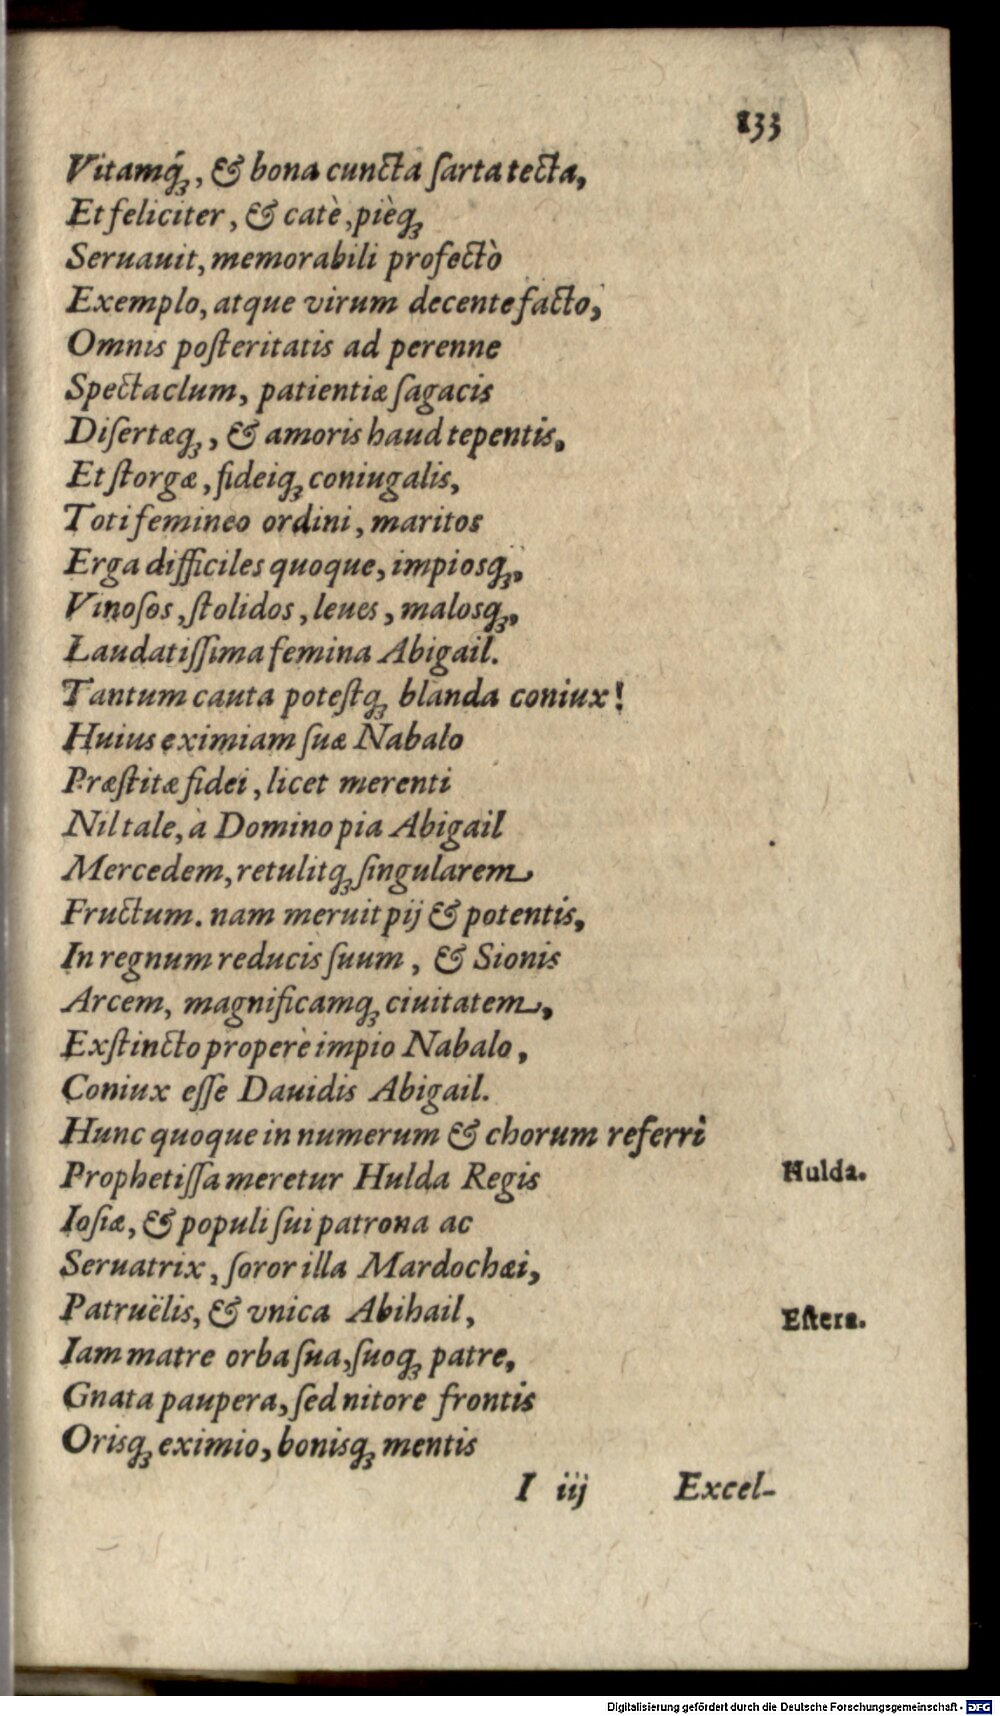 133
Vitamq́ꝫ, & bona cuncta ſarta tecta,
Et feliciter, & catè, pièqꝫ
Seruauit, memorabili profectò
Exemplo, atque virum decente facto,
Omnis poſteritatis ad perenne
Spectaclum, patientiæ ſagacis
Diſertæqꝫ, & amoris haud tepentis,
Et ſtorgæ, fideiqꝫ coniugalis,
Toti femineo ordini, maritos
Erga difficiles quoque, impiosqꝫ,
Vinoſos, ſtolidos, leues, malosqꝫ,
Laudatiſſima femina Abigail.
Tantum cauta poteſtqꝫ blanda coniux!
Huius eximiam ſuæ Nabalo
Præſtitæ fidei, licet merenti
Nil tale, à Domino pia Abigail
Mercedem, retulitqꝫ ſingularem
Fructum. nam meruit pij & potentis,
In regnum reducis ſuum, & Sionis
Arcem, magnificamqꝫ ciuitatem,
Exſtincto properè impio Nabalo,
Coniux eſſe Dauidis Abigail.
Hunc quoque in numerum & chorum referri
Prophetiſſa meretur Hulda Regis
Hulda.
Ioſiæ, & populi ſui patrona ac
Seruatrix, ſoror illa Mardochæi,
Patruëlis, & vnica Abihail,
Eſtera.
Iam matre orba ſua, ſuoqꝫ patre,
Gnata paupera, ſed nitore frontis
Orisqꝫ eximio, bonisqꝫ mentis
I iij Excel-
Digitalisierung gefördert durch die Deutsche Forschungsgemeinschaft - DFG